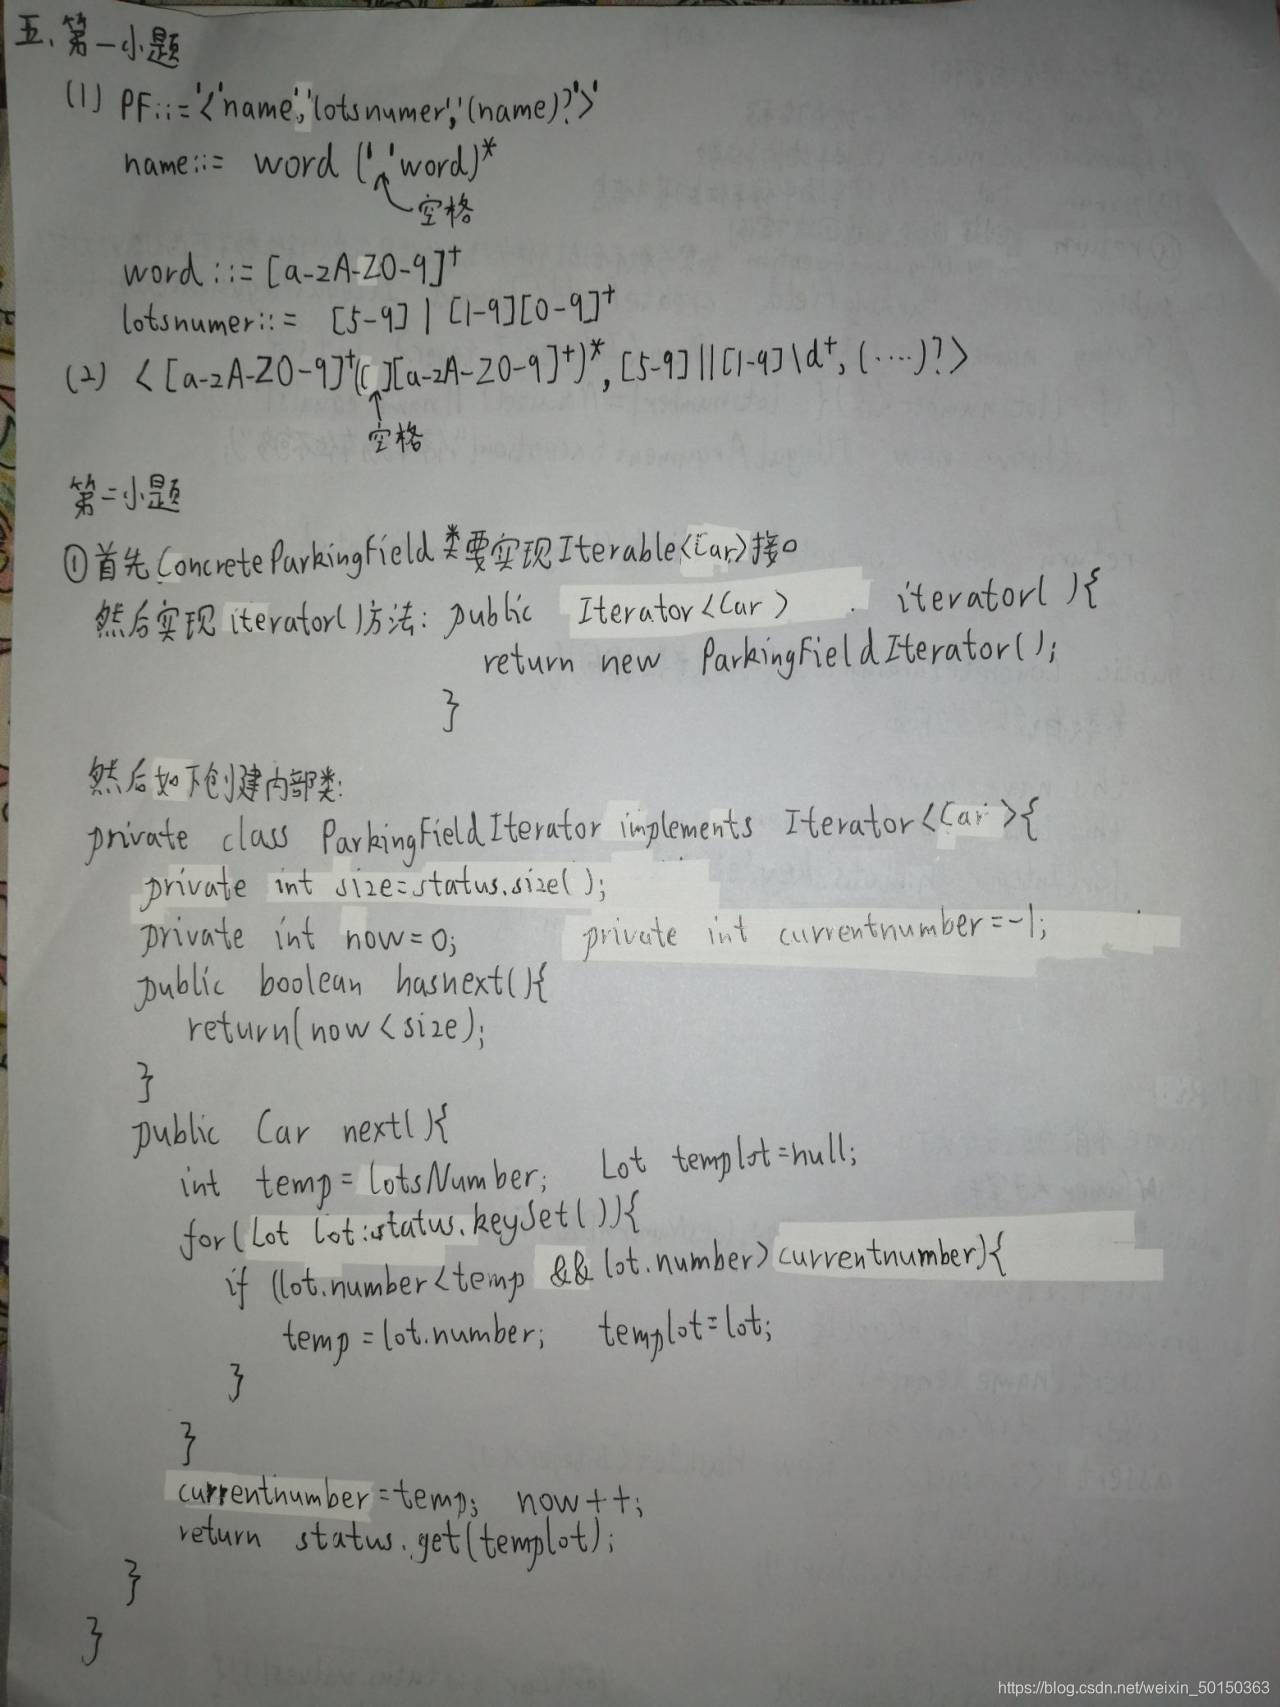 五、第一小题
(1) PF::='<'name','lotsnumer','(name)?'>'
name::= word (' 'word)*
空格
word ::= [a-zA-Z0-9]+
lotsnumer::= [5-9] | [1-9][0-9]+
(2) <[a-zA-Z0-9]+([ ][a-zA-Z0-9]+)*, [5-9]||[1-9]\d+, (....)?>
空格
第二小题
①首先ConcreteParkingField类要实现Iterable<Car>接口
然后实现iterator()方法: public Iterator<Car> iterator(){
return new ParkingFieldIterator();
}
然后如下创建内部类:
private class ParkingFieldIterator implements Iterator<Car>{
private int size=status.size();
private int now=0; private int currentnumber=-1;
public boolean hasnext(){
return(now<size);
}
public Car next(){
int temp=lotsNumber; Lot templot=null;
for(Lot lot:status.keySet()){
if (lot.number<temp && lot.number>currentnumber){
temp=lot.number; templot=lot;
}
}
currentnumber=temp; now++;
return status.get(templot);
}
}
https://blog.csdn.net/weixin_50150363